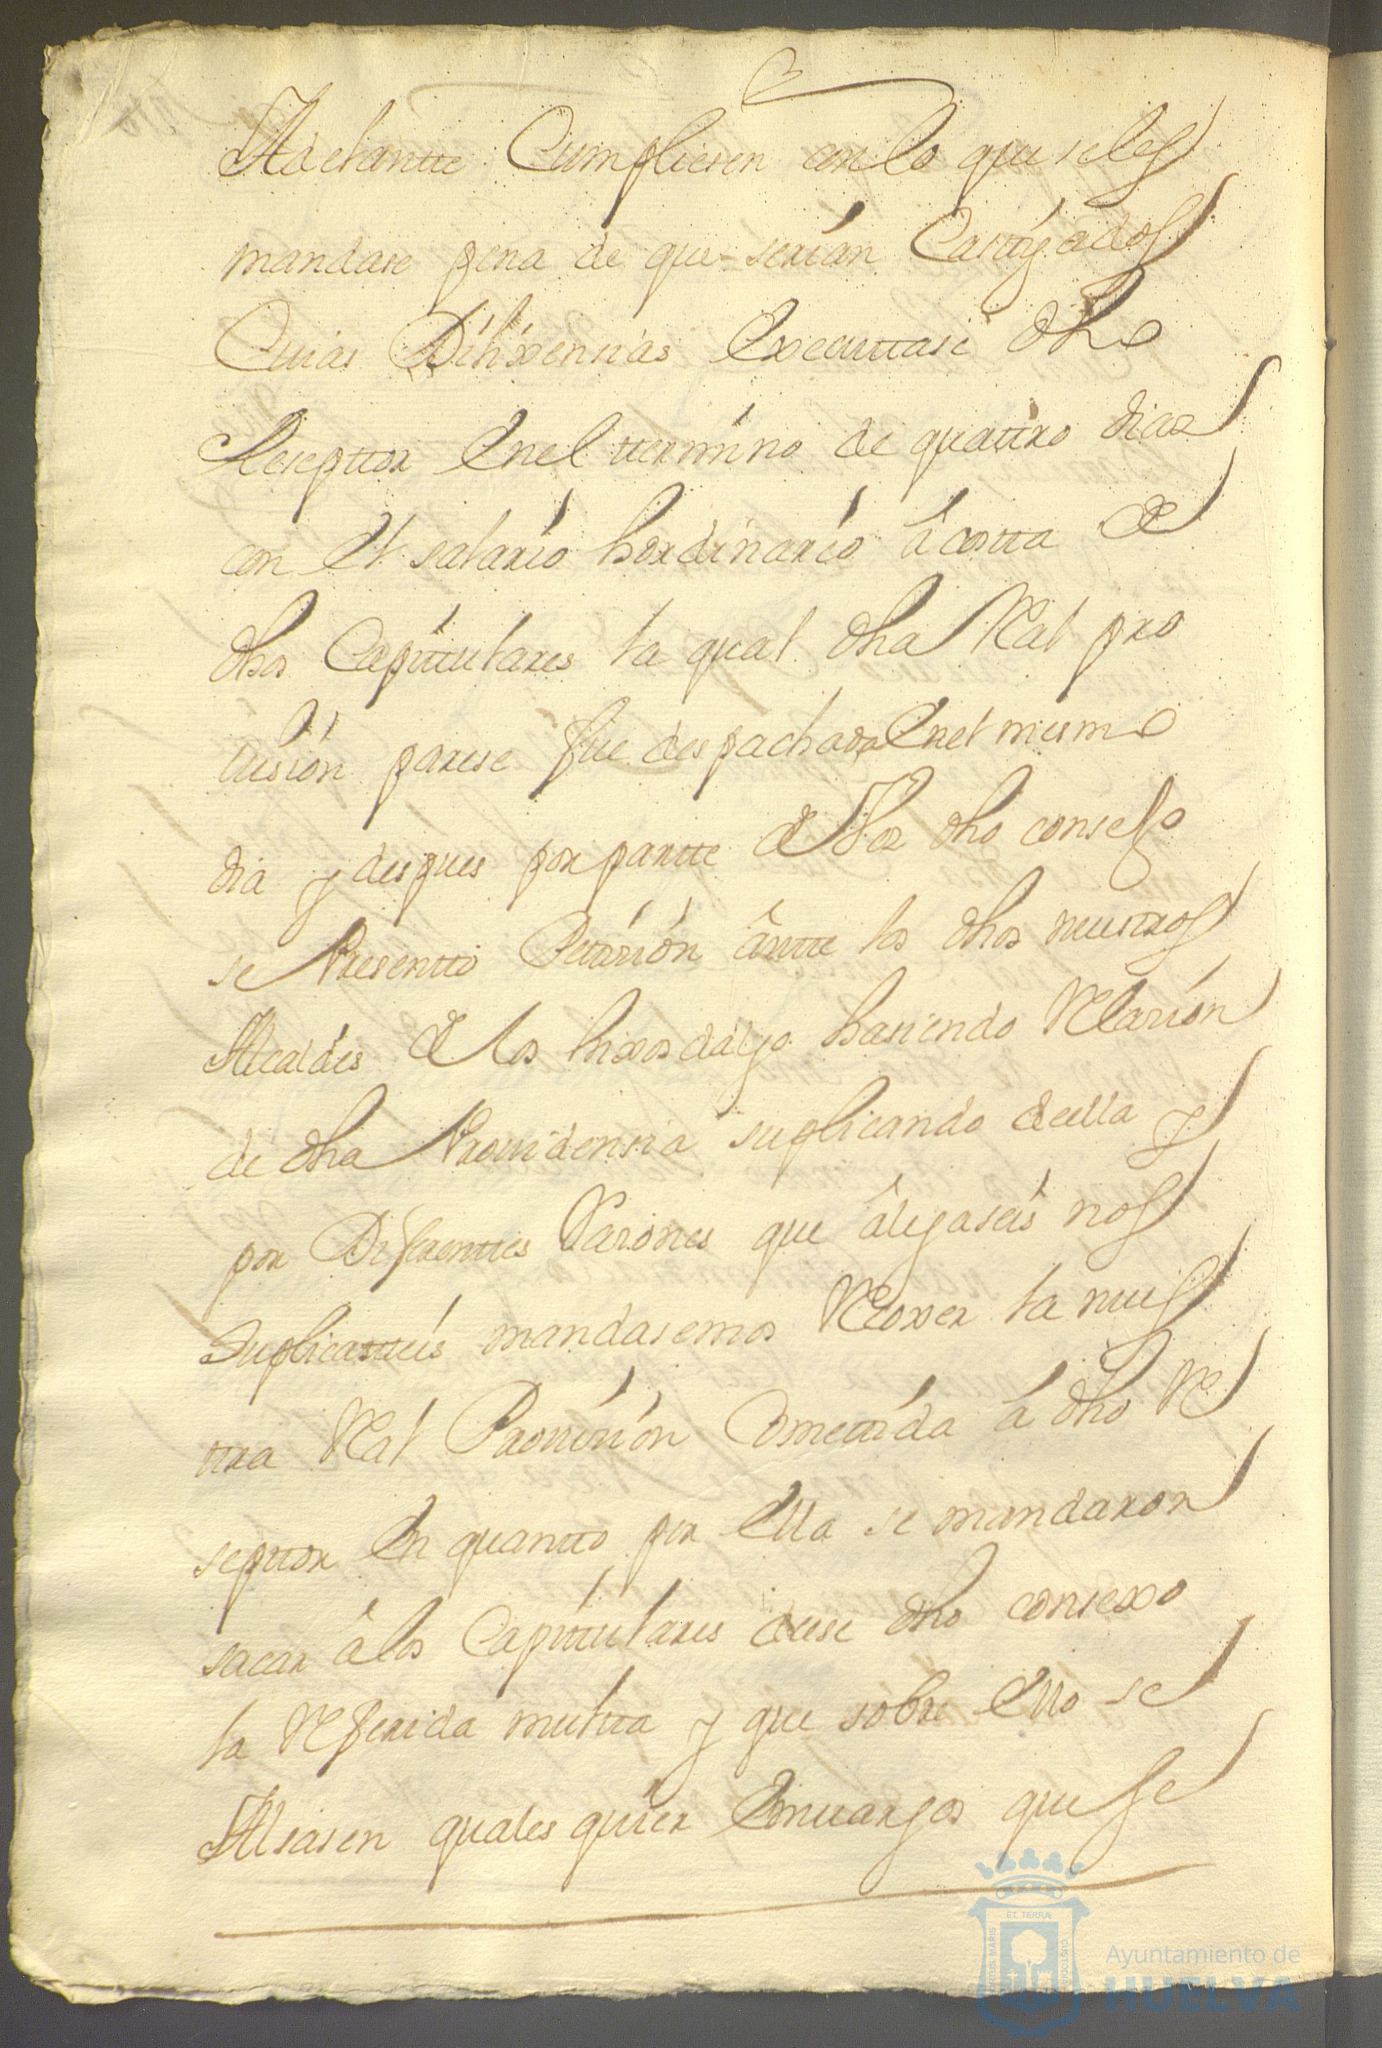 Adelantte Cumpliesen con lo que seles
mandase pena de que serían Castígados
Cuias Dílíxensias Executtase dho
Reseptтor En el ttermíno de quattro dias
con El salarío hordinarío â costta de
dhos Capíttulares la qual dha Real pro
uisíon parese fue despachada En el mismo
dia y despues por partte de Vos dho consejo
se Presentto Pettisíón ântte los dhos nuestros
Alcaldes de los hixosdalgo hasiendo Relasíon
de dha Prouidensia suplicando de ella y
por Diferenttes Rasones que âlegaseis nos
suplicastteís mandasemos Recoxer la nues
ttra Real Prouisíón Comettída â dho Re
septtor En quantto por Ella se mandaron
sacar â los Capíttulares de ese dho consexo
la Referida multta y que sobre Ello se
Alsasen quales quíer Emuargos que se
MARIS
ET TERRÆ
CUSTODIA
Ayuntamiento de
HUELVA